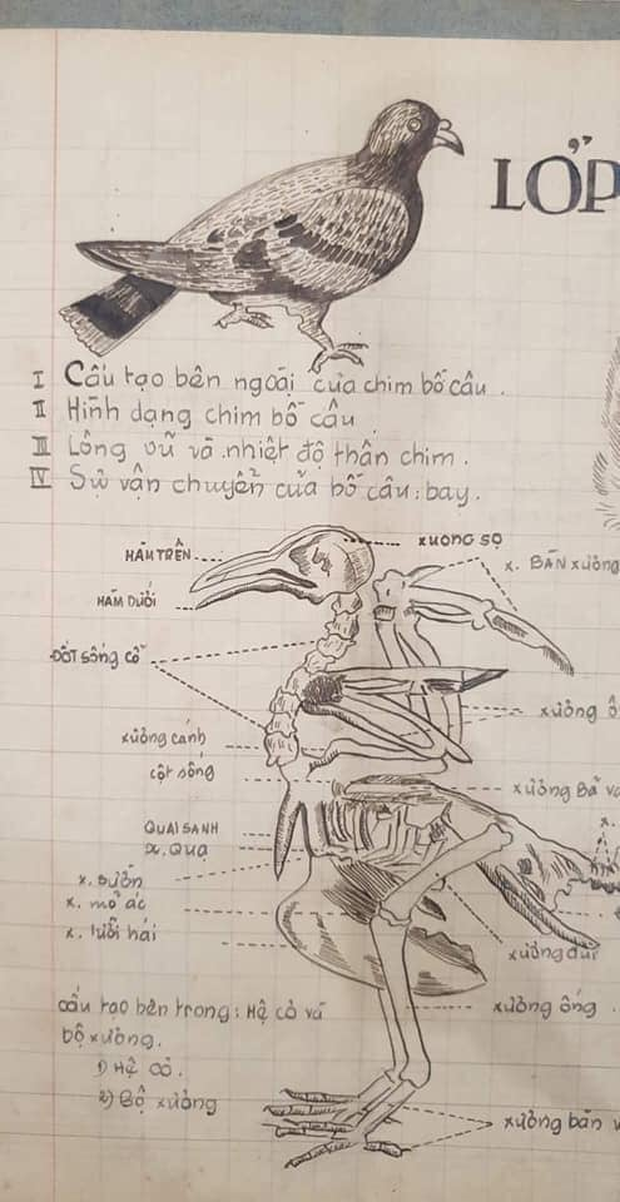 LỚP
I Cấu tạo bên ngoài của chim bồ câu.
II Hình dạng chim bồ câu
III Lông vũ và nhiệt độ thân chim.
IV Sự vận chuyển của bồ câu: bay.
HÀM TRÊN
xương sọ
x. BÀN xương
HÀM DƯỚI
ĐỐT sống cổ
xương cánh
cột sống
xương Bả
QUAI SANH
x. QUẠ
x. sườn
x. mỏ ác
x. lưỡi hái
xương đùi
cấu tạo bên trong: Hệ cơ và
bộ xương.
xương ống
1) Hệ cơ.
2) Bộ xương
xương bàn